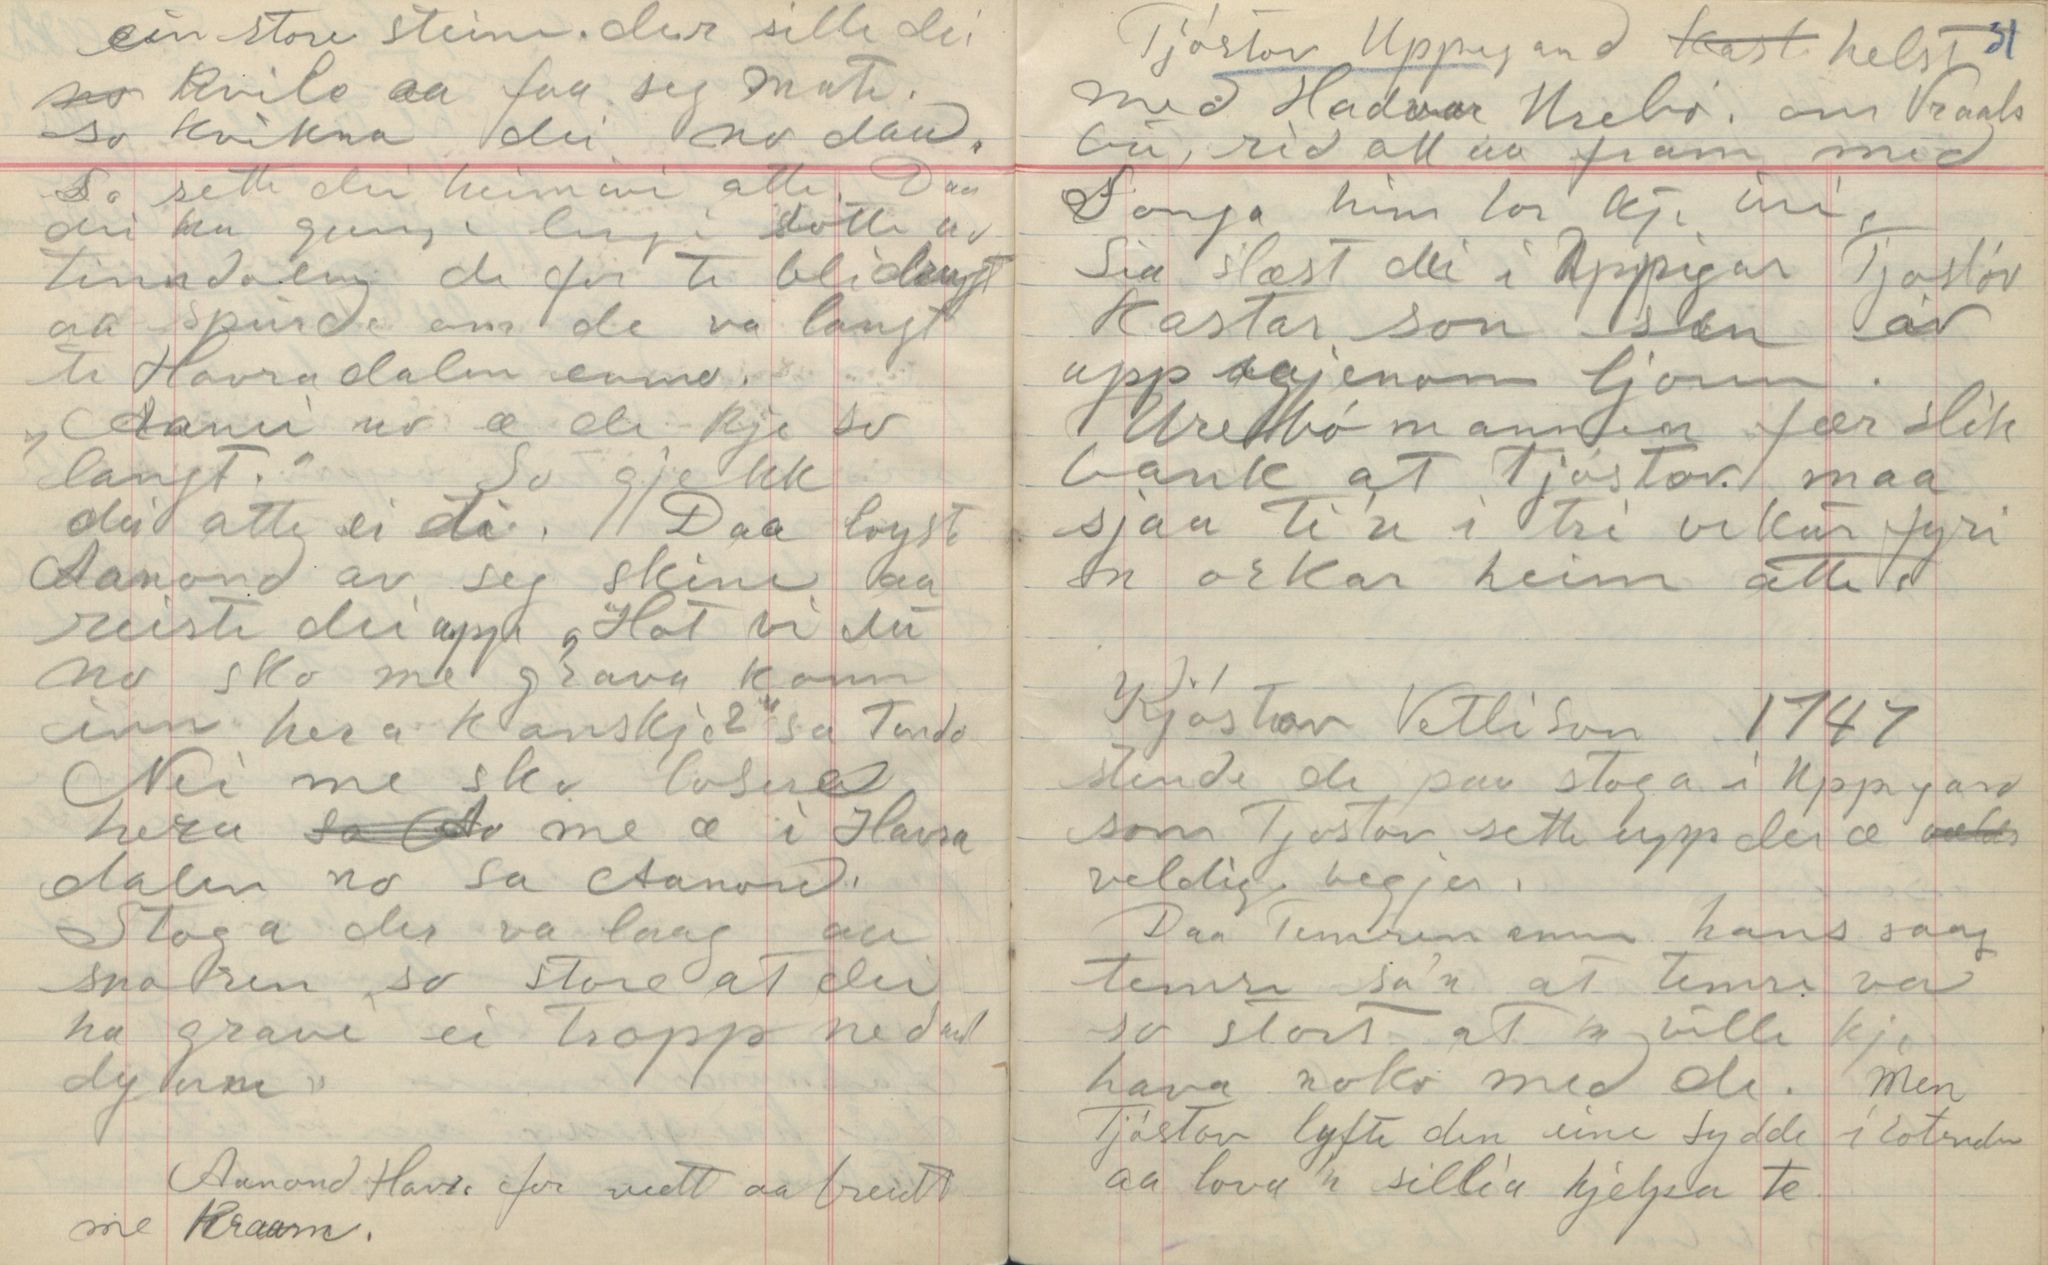 ein store steine. der sille dei
no kvile aa faa seg mate.
so kvikna dei no daa.
So sette dei heimivi atte. Daa
dei ha gengi lengi totte av
tinndølen de for te bli drygt
aa spurde om de va langt
te Havradalen enno.
"Aanei no æ de kje so
langt." So gjekk
dei atte ei ti. Daa løyst
Aanond av seg skine aa
reiste dei upp. "Hot vi du
no sko me grava konn
inn hera kanskje?" sa Tindø
Nei me sko losera
hera so Av me æ i Havra
dalen no sa Aanond.
Stoga der va laag aa
snoren so store at dei
ha grave ei tropp ned ad
dyrann
Aanond Havr. for vidt aa breidt
me Kraam.
31
Tjóstov Uppigard kast helst
med Hadvor Urebø. om Vraals
bu, rid att aa fram med
Songa him tor kje uri.
Sia slæst dei i Uppigar Tjostóv
kastar son sen av
upp igjenom ljoren.
Urebømannen fær slik
bank at Tjóstov maa
sjaa ti'n i tri vikur fyri
n orkar heim atte.
Kjóstov Vetlison 1747
stende de paa stoga i Uppigard
som Tjostov sette upp der æ
veldig vegjer.
Daa Temremannen hans saag
temre sa'n at temre va
so stort at n ville kje
hava noko med de. Men
Tjóstov lyfte den eine sydde i rotenden
aa lova 'n sillia hjelpa te